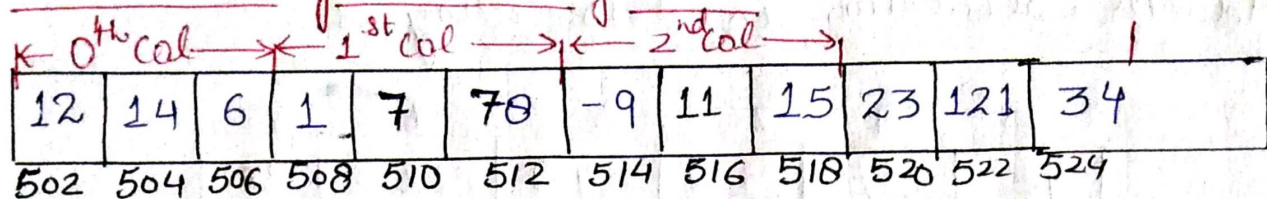 0th Col 1st Col 2nd Col
12 14 6 1 7 78 -9 11 15 23 121 34
502 504 506 508 510 512 514 516 518 520 522 524